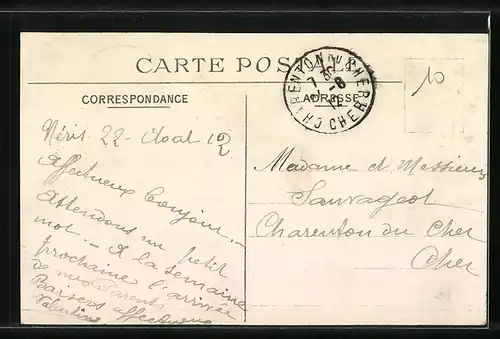 CARTE POSTALE
CORRESPONDANCE
ADRESSE
CHARENTON DU CHER
CHER
10
Néris 22 - Août 12
Affectueux bonjour. -
Attendons un petit
mot. - A la semaine
prochaine l'arrivée
de
Baisers affectueux
Valentine
Madame et Messieurs
Sauvageot
Charenton du Cher
Cher